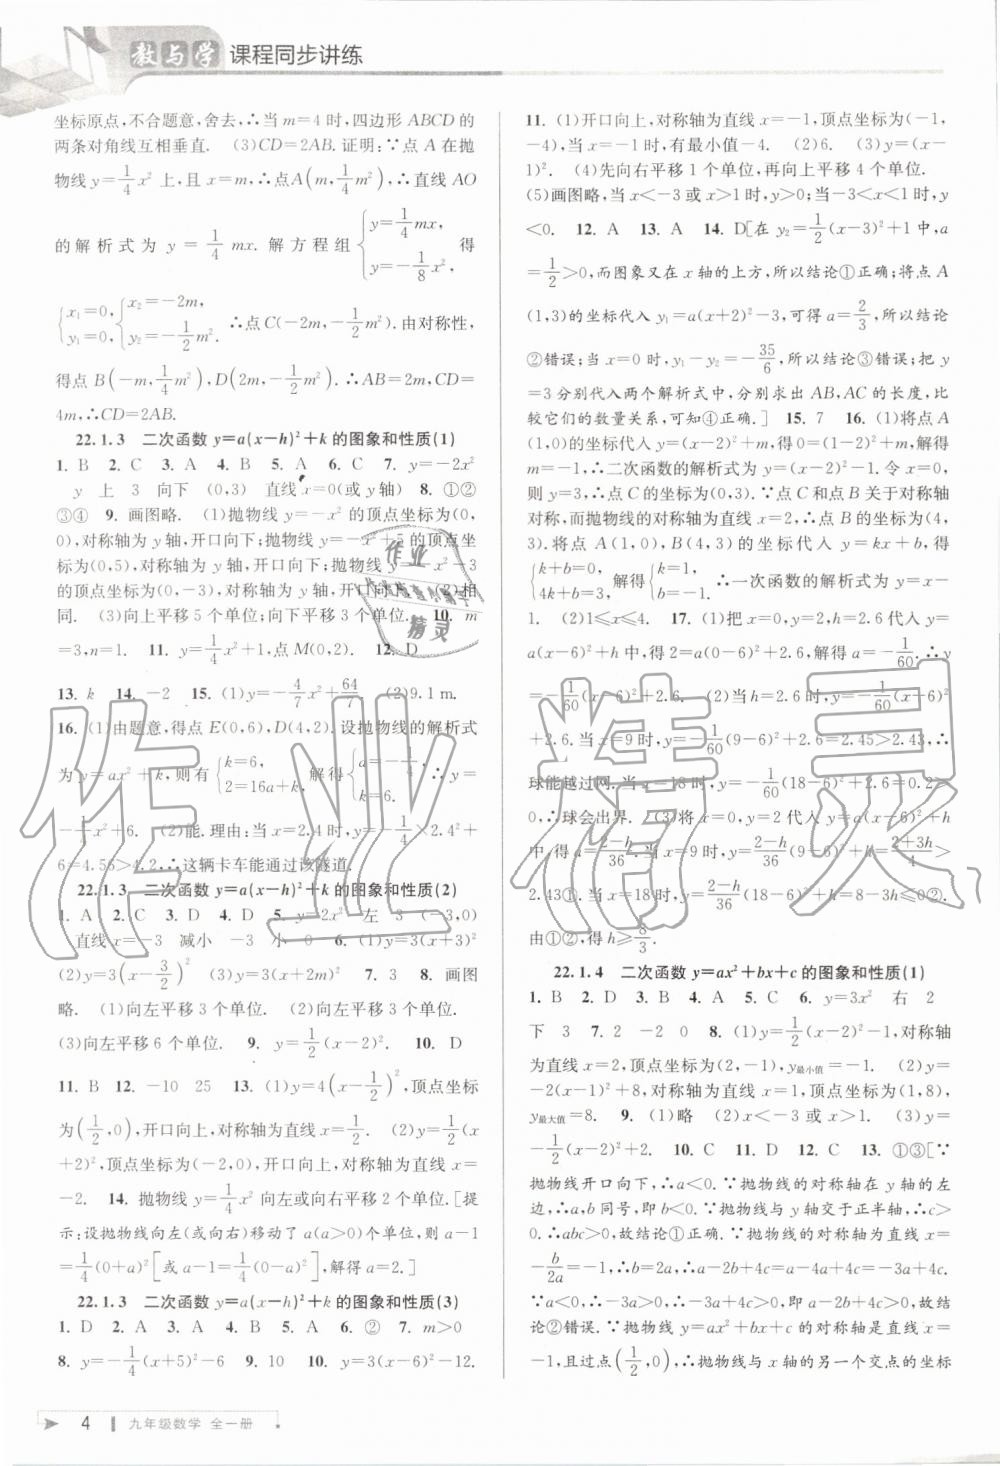 教与学 课程同步讲练
坐标原点,不合题意,舍去,∴当 m=4 时,四边形 ABCD 的
两条对角线互相垂直. (3)CD=2AB. 证明:∵点 A 在抛
物线 y=1/4 x² 上,且 x=m,∴点A(m, 1/4 m²),∴直线 AO
的解析式为 y = 1/4 mx. 解方程组 { y=1/4 mx, y=-1/8 x², 得
{ x₁=0, y₁=0, { x₂=-2m, y₂=-1/2 m². ∴点 C(-2m, -1/2 m²). 由对称性,
得点 B(-m, 1/4 m²), D(2m, -1/2 m²). ∴AB=2m, CD=
4m,∴CD=2AB.
22.1.3 二次函数 y=a(x-h)²+k 的图象和性质(1)
1. B 2. C 3. A 4. B 5. A 6. C 7. y=-2x²
y 上 3 向下 (0,3) 直线 x=0(或 y 轴) 8. ①②
③④ 9. 画图略. (1)抛物线 y=-x² 的顶点坐标为(0,
0),对称轴为 y 轴,开口向下;抛物线 y=-x²+5 的顶点坐
标为(0,5),对称轴为 y 轴,开口向下;抛物线 y=-x²-3
的顶点坐标为(0,-3),对称轴为 y 轴,开口向下. (2)相
同. (3)向上平移 5 个单位;向下平移 3 个单位. 10. m
=3,n=1. 11. y=1/4 x²+1,点 M(0,2). 12. D
13. k 14. -2 15. (1)y=-4/7 x²+64/7. (2)9.1 m.
16. (1)由题意,得点 E(0,6),D(4,2). 设抛物线的解析式
为 y=ax²+k,则有 { k=6, 2=16a+k, 解得 { a=-1/4, k=6. ∴y=
-1/4 x²+6. (2)能. 理由:当 x=2.4 时,y=-1/4×2.4²+
6=4.56>4.2,∴这辆卡车能通过该隧道.
22.1.3 二次函数 y=a(x-h)²+k 的图象和性质(2)
1. A 2. C 3. D 4. D 5. y=2x² 左 3 (-3,0)
直线 x=-3 减小 -3 小 0 6. (1)y=3x²
(2)y=3(x-3/2)² (3)y=3(x+2m)² 7. 3 8. 画图
略. (1)向左平移 3 个单位. (2)向右平移 3 个单位.
(3)向左平移 6 个单位. 9. y=1/2(x-3)² 10. D
11. B 12. -10 25 13. (1)y=4(x-1/2)²,顶点坐标
为(1/2,0),开口向上,对称轴为直线 x=1/2. (2)y=1/2(x
+2)²,顶点坐标为(-2,0),开口向上,对称轴为直线 x=
-2. 14. 抛物线 y=1/4 x² 向左或向右平移 2 个单位.[提
示:设抛物线向左(或向右)移动了 a(a>0)个单位,则 a-1=
1/4(0+a)²[或 a-1=1/4(0-a)²],解得 a=2.]
22.1.3 二次函数 y=a(x-h)²+k 的图象和性质(3)
1. D 2. A 3. A 4. B 5. A 6. ② 7. m>0
8. y=-1/4(x+5)²-6 9. 10 10. y=3(x-6)²-12.
11. (1)开口向上,对称轴为直线 x=-1,顶点坐标为(-1,
-4),当 x=-1 时,有最小值-4. (2)6. (3)y=(x-
1)². (4)先向右平移 1 个单位,再向上平移 4 个单位.
(5)画图略,当 x<-3 或 x>1 时,y>0;当-3<x<1 时,y
<0. 12. A 13. A 14. D[在 y₂=1/2(x-3)²+1 中,a
=1/2>0,而图象又在 x 轴的上方,所以结论①正确;将点 A
(1,3)的坐标代入 y₁=a(x+2)²-3,可得 a=2/3,所以结论
②错误;当 x=0 时,y₁-y₂=-35/6,所以结论③错误;把 y
=3 分别代入两个解析式中,分别求出 AB,AC 的长度,比
较它们的数量关系,可知④正确.] 15. 7 16. (1)将点
A(1,0)的坐标代入 y=(x-2)²+m,得 0=(1-2)²+m,解得
m=-1,∴二次函数的解析式为 y=(x-2)²-1. 令 x=0,
则 y=3,∴点 C 的坐标为(0,3). ∵点 C 和点 B 关于对称轴
对称,而抛物线的对称轴为直线 x=2,∴点 B 的坐标为(4,
3). 将点 A(1,0),B(4,3) 的坐标代入 y=kx+b,得
{ k+b=0, 4k+b=3, 解得 { k=1, b=-1. ∴一次函数的解析式为 y=x-
1. (2)1≤x≤4. 17. (1)把 x=0,y=2,h=2.6 代入 y=
a(x-6)²+h 中,得 2=a(0-6)²+2.6,解得 a=-1/60,∴y
=-1/60(x-6)²+2.6. (2)当 h=2.6 时,y=-1/60(x-6)²
+2.6. 当 x=9 时,y=-1/60(9-6)²+2.6=2.45>2.43,∴
球能越过网. 当 x=18 时,y=-1/60(18-6)²+2.6=0.2>
0,∴球会出界. (3)将 x=0,y=2 代入 y=a(x-6)²+h
中,得 a=2-h/36. 当 x=9 时,y=2-h/36(9-6)²+h=2+3h/4>
2.43①. 当 x=18 时,y=2-h/36(18-6)²+h=8-3h≤0②.
由①②,得 h≥8/3.
22.1.4 二次函数 y=ax²+bx+c 的图象和性质(1)
1. B 2. D 3. B 4. A 5. C 6. y=3x² 右 2
下 3 7. 2 -2 0 8. (1)y=1/2(x-2)²-1,对称轴
为直线 x=2,顶点坐标为(2,-1),y最小值=-1. (2)y=
-2(x-1)²+8,对称轴为直线 x=1,顶点坐标为(1,8),
y最大值=8. 9. (1)略 (2)x<-3 或 x>1. (3)y=
-1/2(x-2)²+2. 10. C 11. D 12. C 13. ①③[∵
抛物线开口向下,∴a<0. ∵抛物线的对称轴在 y 轴的左
边,∴a,b 同号,即 b<0. ∵抛物线与 y 轴交于正半轴,∴c>
0. ∴abc>0,故结论①正确. ∵抛物线的对称轴为直线 x=
-b/2a=-1,∴b=2a,∴a-2b+4c=a-4a+4c=-3a+4c.
∵a<0,∴-3a>0,∴-3a+4c>0,即 a-2b+4c>0,故结
论②错误. ∵抛物线 y=ax²+bx+c 的对称轴是直线 x=
-1,且过点(1/2,0),∴抛物线与 x 轴的另一个交点的坐标
4 九年级数学 全一册
作业精灵
作业
精灵